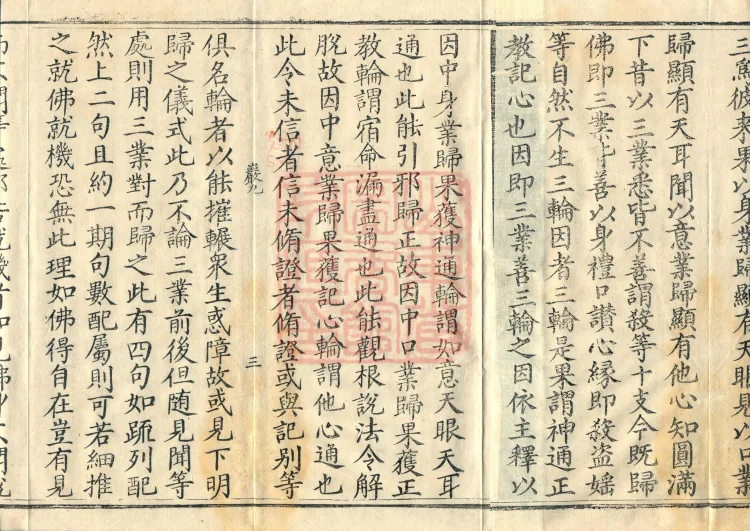 三爲彼來果以身業歸顯有天眼見以口業
歸顯有天耳聞以意業歸顯有他心知圓滿
下昔以三業悉皆不善謂殺等十支今既歸
佛即三業皆善以身禮口讚心緣即殺盜婬
等自然不生三輪因者三輪是果謂神通正
教記心也因即三業善三輪之因依主釋以
因中身業歸果獲神通輪謂如意天眼天耳
通也此能引邪歸正故因中口業歸果獲正
教輪謂宿命漏盡通也此能觀根說法令解
脫故因中意業歸果獲記心輪謂他心通也
此令未信者信未脩證者脩證或與記別等
巖九 三
俱名輪者以能摧輾衆生惑障故或見下明
歸之儀式此乃不論三業前後但随見聞等
處則用三業對而歸之此有四句如䟽列配
然上二句且約一期句數配屬則可若細推
之就佛就機恐無此理如佛得自在豈有見